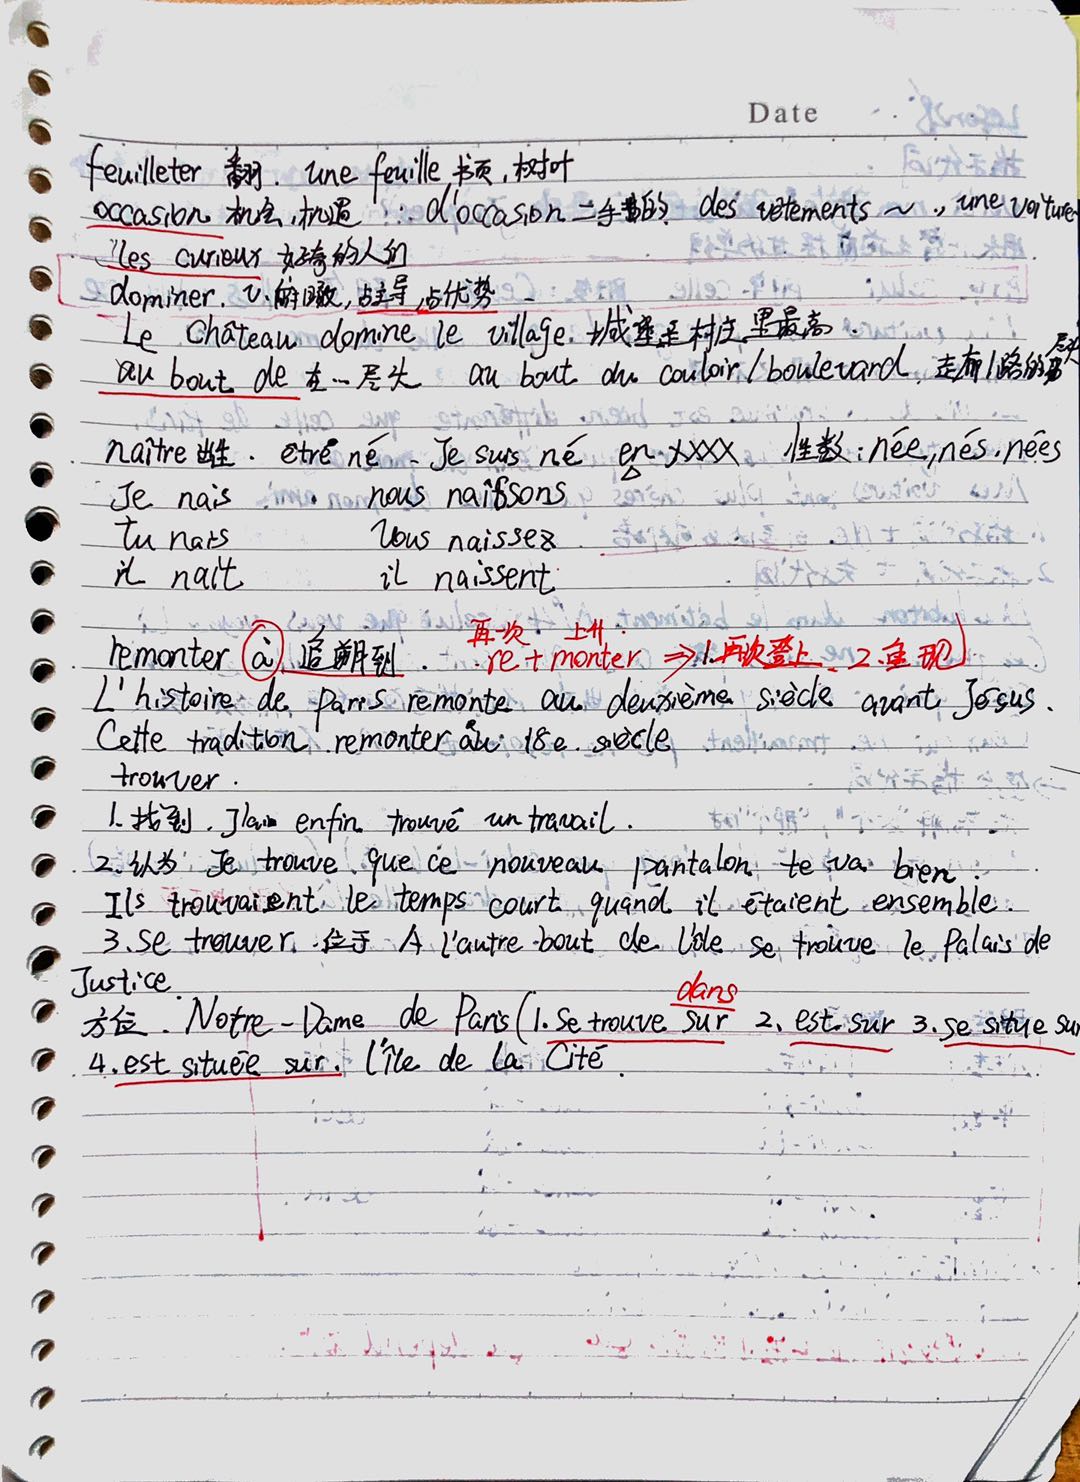 Date
feuilleter 翻. une feuille 书页,树叶
occasion 机会,机遇 d'occasion 二手的 des vêtements ~ , une voiture
les curieux 好奇的人们
dominer. v. 俯瞰,占主导,占优势
Le Château domine le village. 城堡是村庄里最高
au bout de 在…尽头 au bout du couloir/boulevard. 走廊/路的尽头
naître 出生. être né - Je suis né en XXXX 性数:née,nés.nées
Je nais nous naissons
tu nais vous naissez
il naît il naissent
再一次 上升
remonter à 追溯到. re+monter ⇒ 1.再次登上 2.重现
L'histoire de Paris remonte au deuxième siècle avant Jésus.
Cette tradition remonter au 18e siècle
trouver.
1.找到. J'ai enfin trouvé un travail.
2.认为 Je trouve que ce nouveau pantalon te va bien.
Ils trouvaient le temps court quand il étaient ensemble.
3.se trouver 位于 A l'autre bout de l'île se trouve le Palais de
Justice.
dans
方位. Notre-Dame de Paris(1.se trouve sur 2.est sur 3.se situe sur
4.est située sur. l'île de la Cité